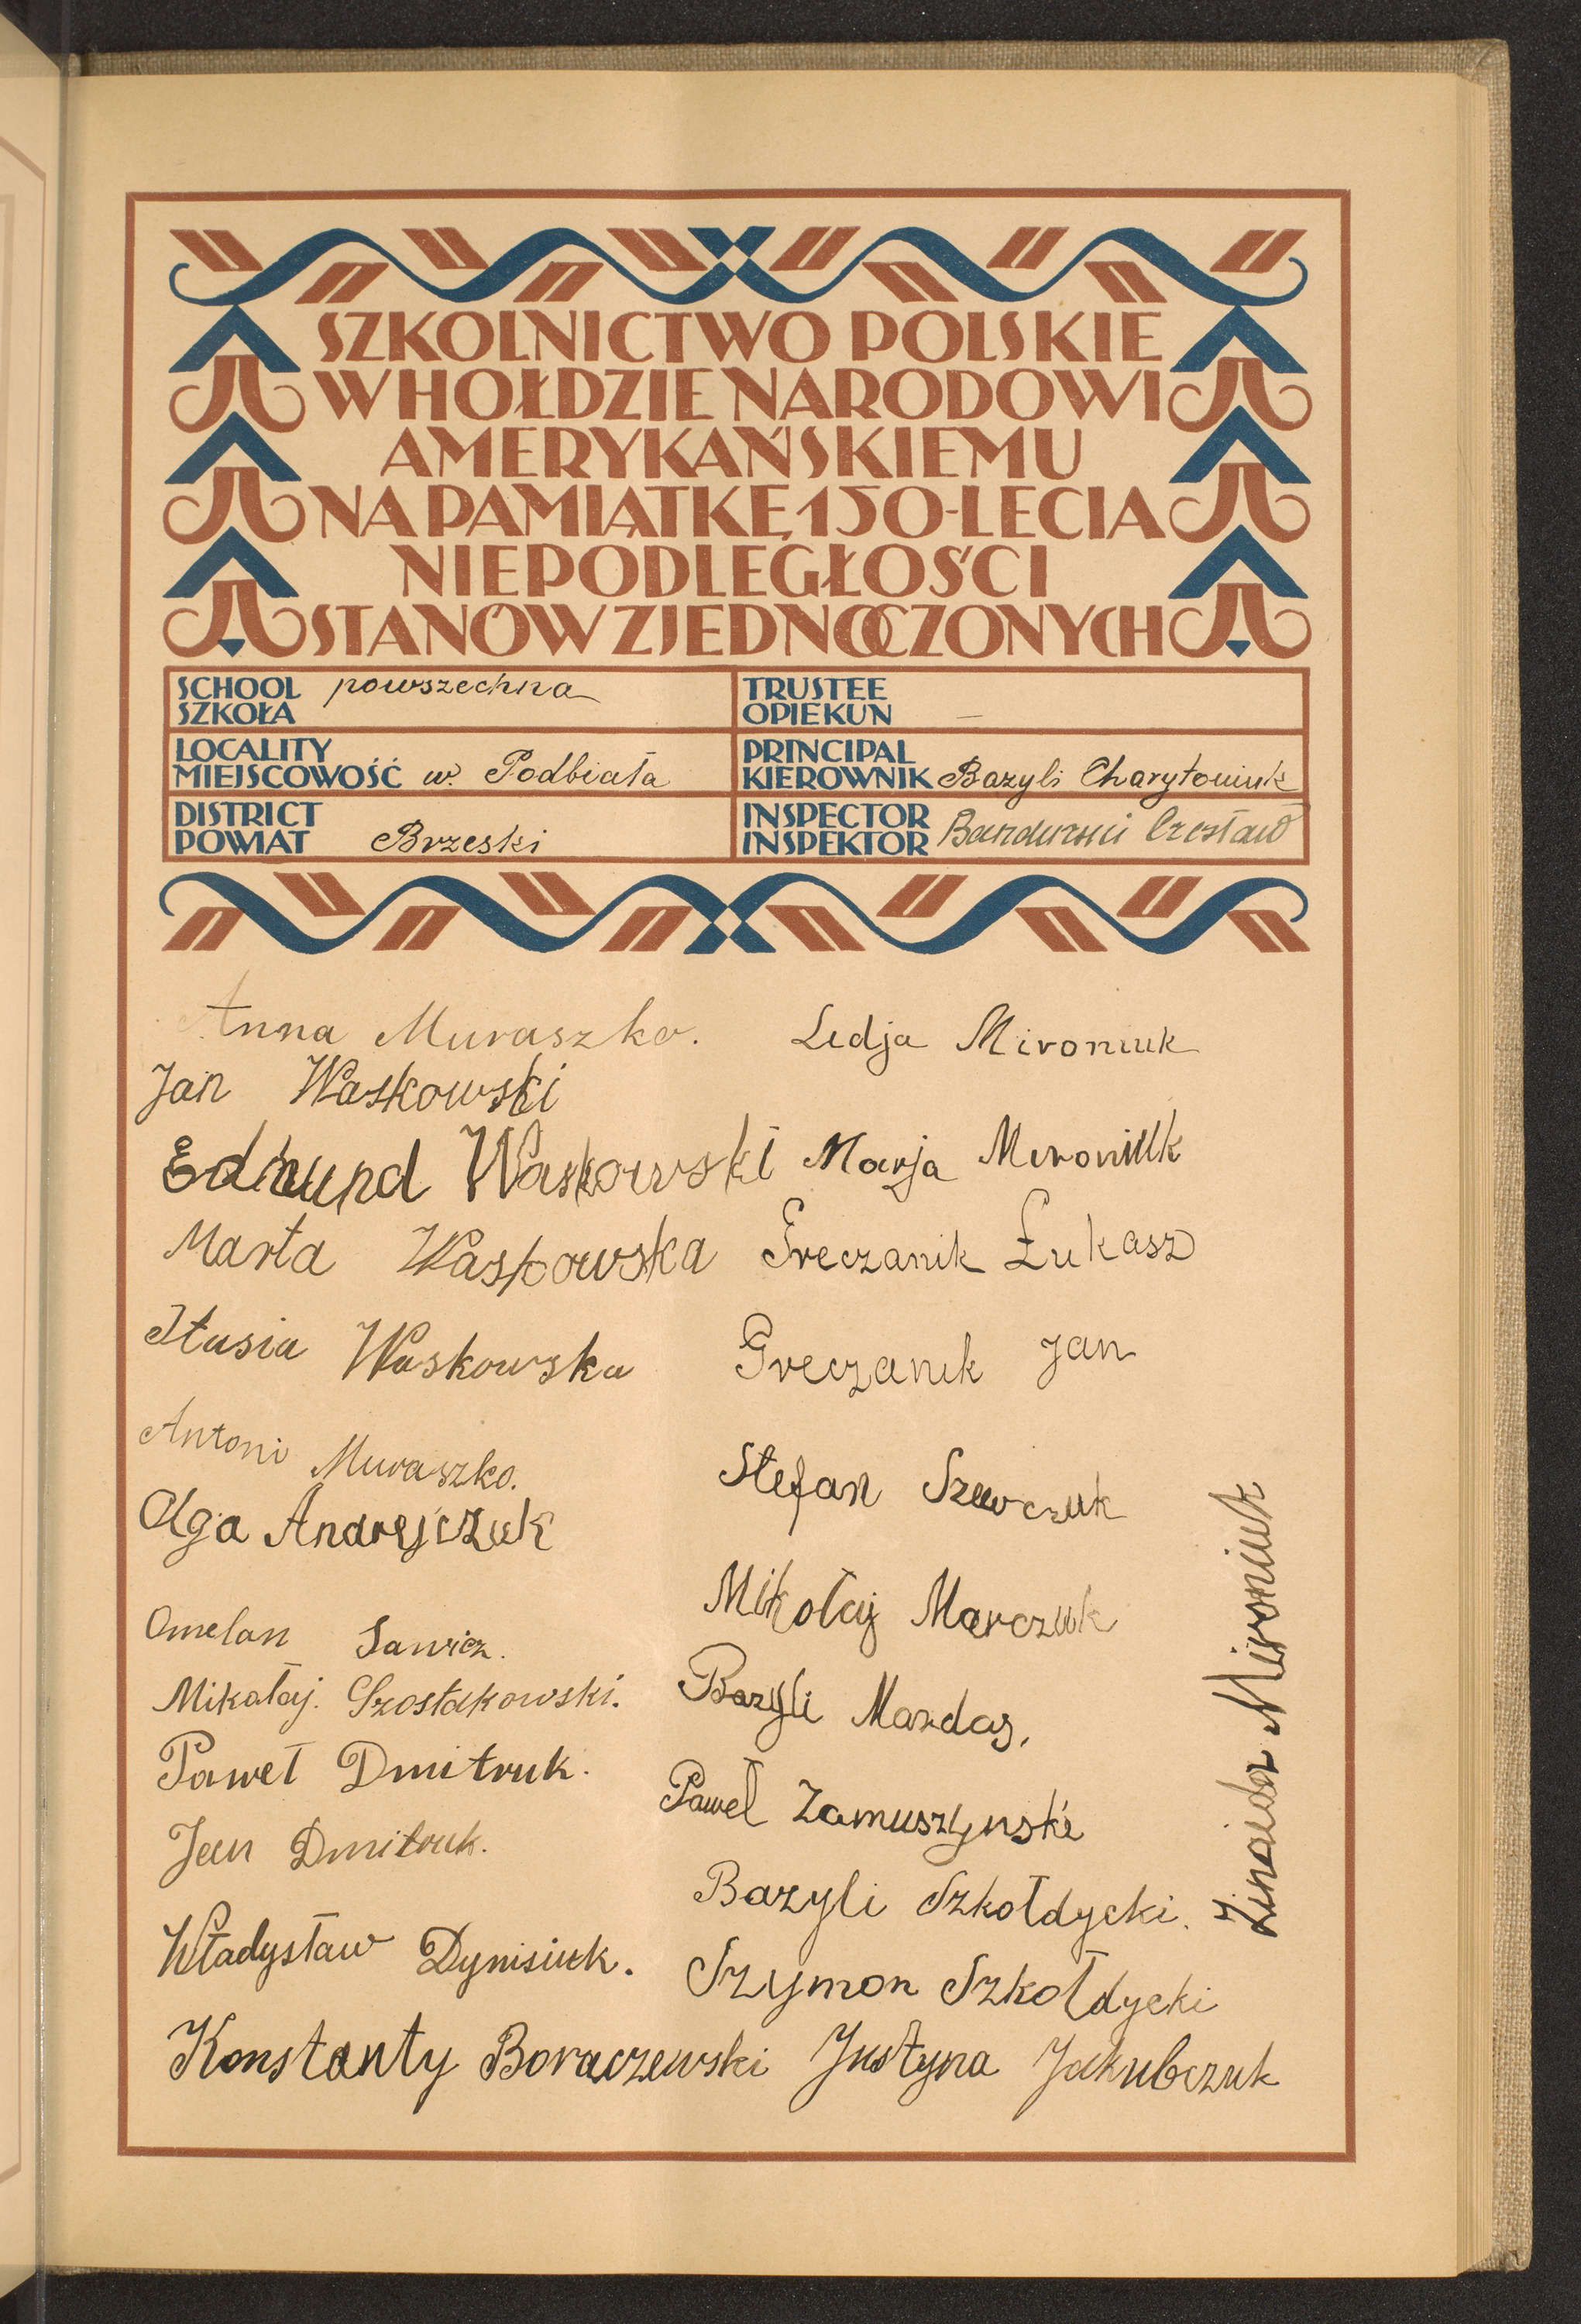 SZKOLNICTWO POLSKIE
W HOŁDZIE NARODOWI
AMERYKAŃSKIEMU
NA PAMIĄTKĘ 150-LECIA
NIEPODLEGŁOŚCI
STANÓW ZJEDNOCZONYCH
SCHOOL
SZKOŁA powszechna
TRUSTEE
OPIEKUN —
LOCALITY
MIEJSCOWOŚĆ w. Podbiała
PRINCIPAL
KIEROWNIK Bazyli Charytoniuk
DISTRICT
POWIAT Brzeski
INSPECTOR
INSPEKTOR Bandurski Czesław
Anna Muraszko.
Jan Waskowski
Edmund Waskowski
Marta Waskowska
Stasia Waskowska
Antoni Muraszko.
Olga Andrejczuk
Omelan Sawicz.
Mikałaj. Szostakowski.
Paweł Dmitruk.
Jan Dmitruk.
Władysław Dynisiuk.
Konstanty Boraczewski
Lidja Mironiuk
Marja Mironiuk
Greczanik Łukasz
Greczanik Jan
Stefan Szewczuk
Mikołaj Marczuk
Bazyli Mazdag,
Paweł Zamuszynski
Bazyli Szkołdycki.
Szymon Szkołdycki
Justyna Jakubczuk
Zinaida Mironiuk